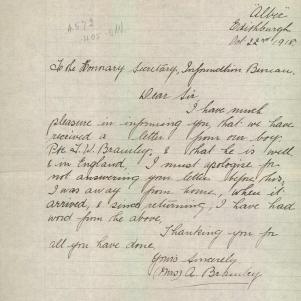 "Albie"
Edithburgh
Oct 22nd 1918
To the Honorary Secretary, Information Bureau.
Dear Sir
I have much
pleasure in informing you that we have
received a letter from our boy.
Pte L. W. & that he is well
& in England. I must apologise for
not answering your letter before this,
I was away from home, when it
arrived, & since returning, I have had
word from the above.
Thanking you for
all you have done
Yours Sincerely
(Mrs) A.